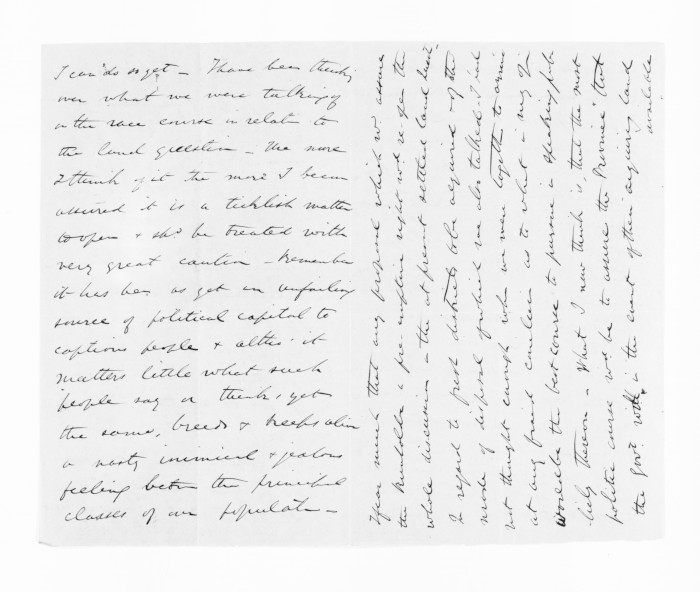 I can do so yet – I have been thinking
over what we were talking of
on the race course in relatn to
the land question – The more
I think of it the more I becom
assured it is a ticklish matter
to open & shd be treated with
very great caution – Remember
it has been as yet an unfailing
source of political capital to
captious people & altho' it
matters little what such
people say or think, yet
the same, breeds & keeps alive
a nasty inimical & jealous
feeling betwn the principal
classes of our populatn –
I fear much that any proposal which wd. assure
the runholders a pre-emptive right wd re-open the
whole discussion – the at present settled land
In regard to fresh districts to be acquired & of the
mode of disposal of which we also talked – I had
not thought enough when we were together to arrive
at any final conclusion as to what in my
would be the best course to pursue in speaking pub-
licly thereon – What I now think is, that the most
politic course wd be to assure the Province that
the Govt. in the event of their acquiring land
available